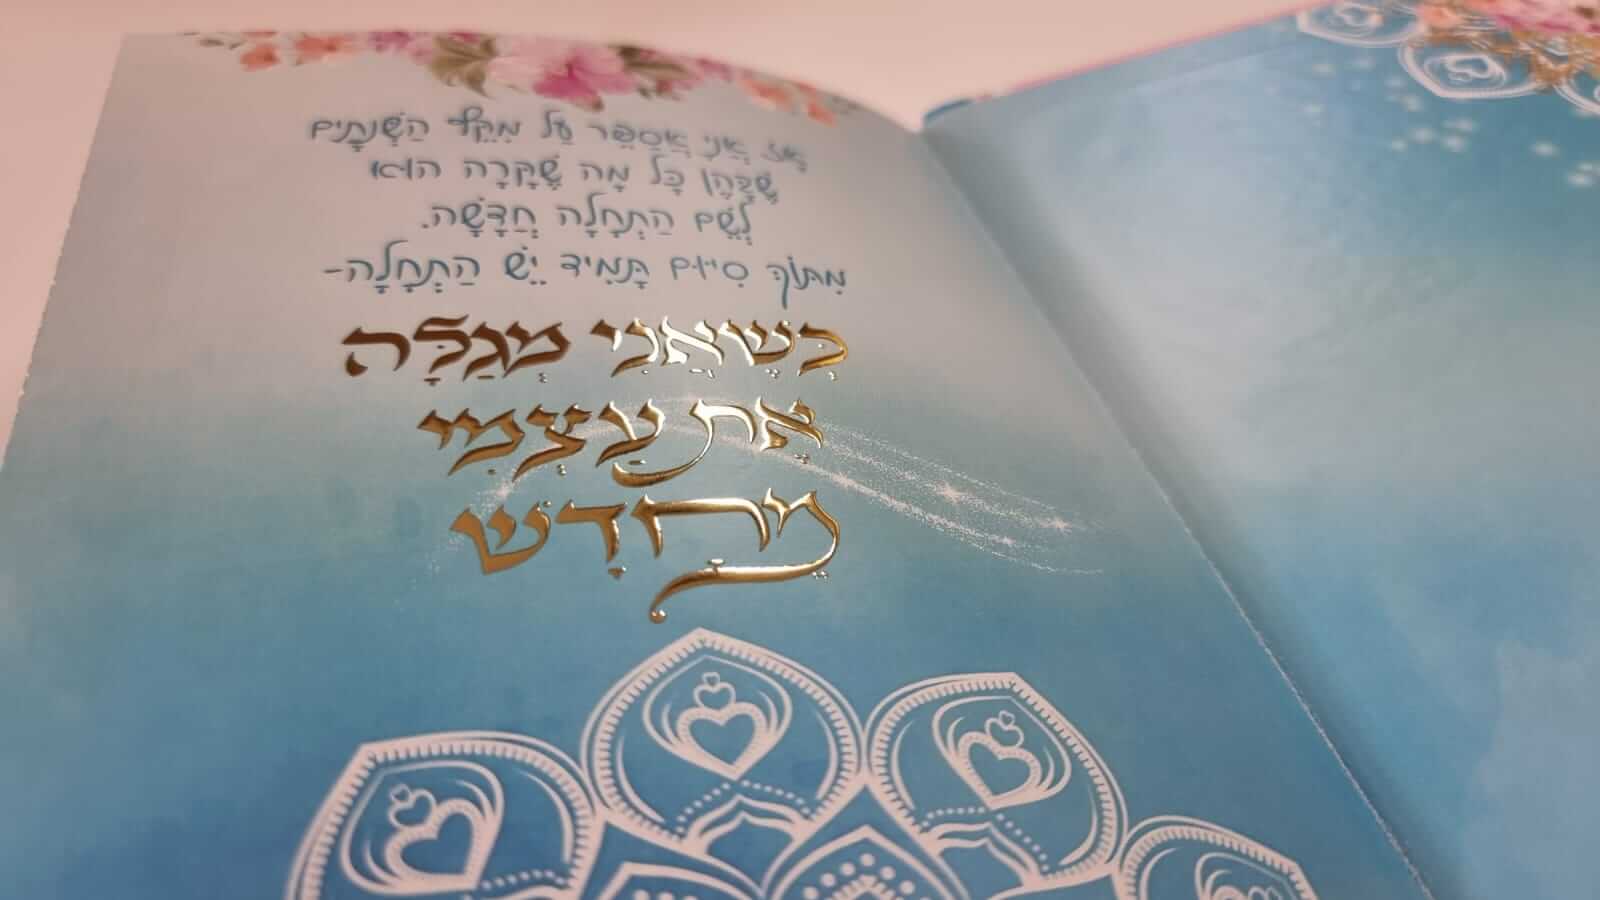 אָז אֲנִי אֲסַפֵּר עַל מִקֵּץ הַשְּׁנָתַיִם
שֶׁבָּהֶן כָּל מָה שֶׁקָּרָה הוּא
לְשֵׁם הַתְחָלָה חֲדָשָׁה.
מִתּוֹךְ סִיּוּם תָּמִיד יֵשׁ הַתְחָלָה-
כְּשֶׁאֲנִי מְגַלָּה
אֶת עַצְמִי
מֵחָדָשׁ